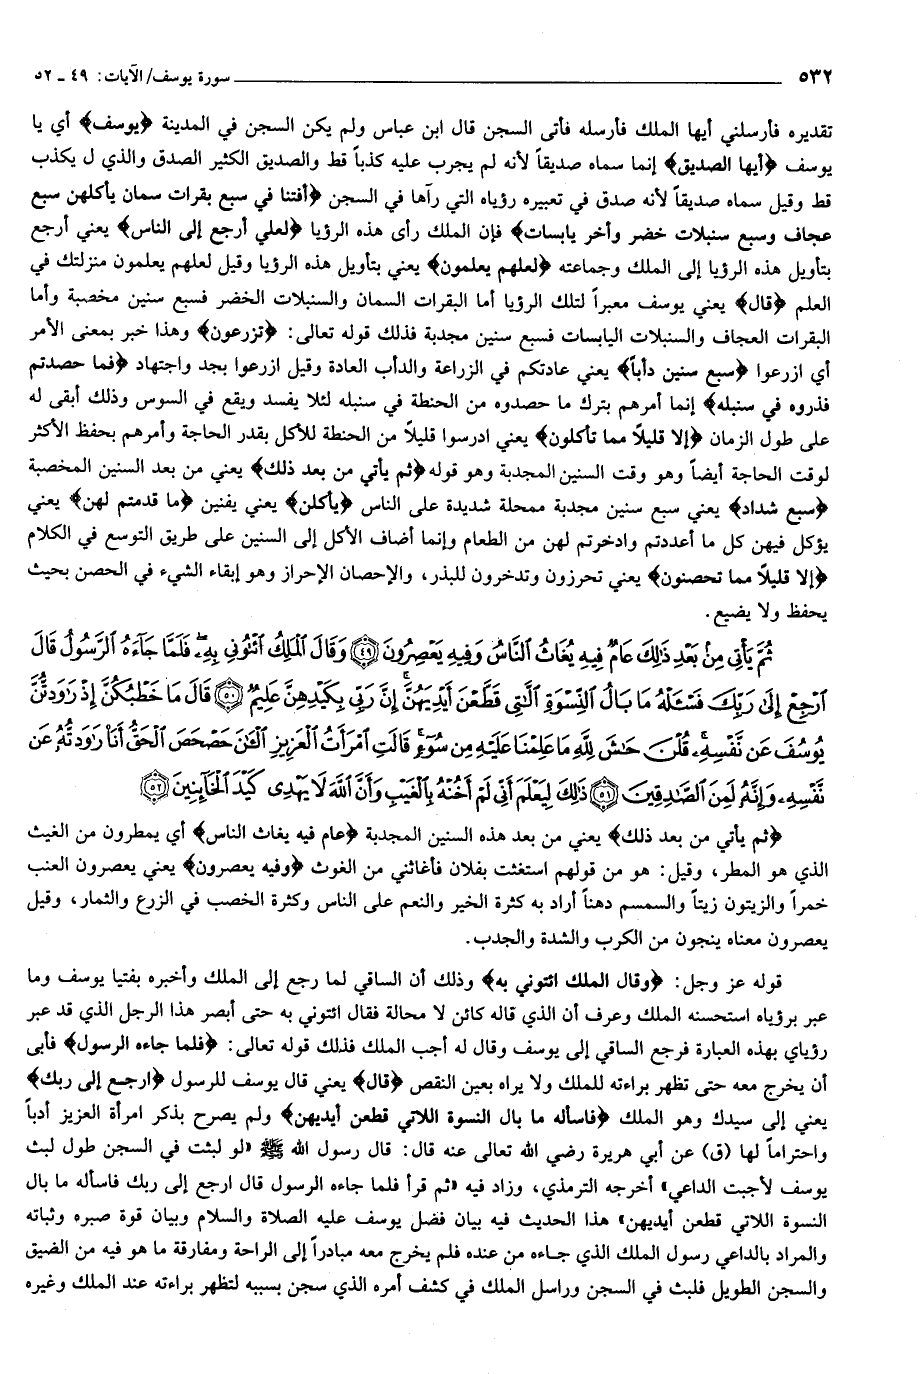 ٥٣٢ سورة يوسف/ الآيات: ٤٩ ـ ٥٢
تقديره فأرسلني أيها الملك فأرسله فأتى السجن قال ابن عباس ولم يكن السجن في المدينة ﴿يوسف﴾ أي يا
يوسف ﴿أيها الصديق﴾ إنما سماه صديقاً لأنه لم يجرب عليه كذباً قط والصديق الكثير الصدق والذي ل يكذب
قط وقيل سماه صديقاً لأنه صدق في تعبيره رؤياه التي رآها في السجن ﴿أفتنا في سبع بقرات سمان يأكلهن سبع
عجاف وسبع سنبلات خضر وأخر يابسات﴾ فإن الملك رأى هذه الرؤيا ﴿لعلي أرجع إلى الناس﴾ يعني أرجع
بتأويل هذه الرؤيا إلى الملك وجماعته ﴿لعلهم يعلمون﴾ يعني بتأويل هذه الرؤيا وقيل لعلهم يعلمون منزلتك في
العلم ﴿قال﴾ يعني يوسف معبراً لتلك الرؤيا أما البقرات السمان والسنبلات الخضر فسبع سنين مخصبة وأما
البقرات العجاف والسنبلات اليابسات فسبع سنين مجدبة فذلك قوله تعالى: ﴿تزرعون﴾ وهذا خبر بمعنى الأمر
أي ازرعوا ﴿سبع سنين دأباً﴾ يعني عادتكم في الزراعة والدأب العادة وقيل ازرعوا بجد واجتهاد ﴿فما حصدتم
فذروه في سنبله﴾ إنما أمرهم بترك ما حصدوه من الحنطة في سنبله لئلا يفسد ويقع في السوس وذلك أبقى له
على طول الزمان ﴿إلا قليلاً مما تأكلون﴾ يعني ادرسوا قليلاً من الحنطة للأكل بقدر الحاجة وأمرهم بحفظ الأكثر
لوقت الحاجة أيضاً وهو وقت السنين المجدبة وهو قوله ﴿ثم يأتي من بعد ذلك﴾ يعني من بعد السنين المخصبة
﴿سبع شداد﴾ يعني سبع سنين مجدبة ممحلة شديدة على الناس ﴿يأكلن﴾ يعني يفنين ﴿ما قدمتم لهن﴾ يعني
يؤكل فيهن كل ما أعددتم وادخرتم لهن من الطعام وإنما أضاف الأكل إلى السنين على طريق التوسع في الكلام
﴿إلا قليلاً مما تحصنون﴾ يعني تحرزون وتدخرون للبذر، والإحصان الإحراز وهو إبقاء الشيء في الحصن بحيث
يحفظ ولا يضيع.
ثُمَّ يَأْتِي مِنْ بَعْدِ ذَٰلِكَ عَامٌ فِيهِ يُغَاثُ ٱلنَّاسُ وَفِيهِ يَعْصِرُونَ ﴿٤٩﴾ وَقَالَ ٱلْمَلِكُ ٱئْتُونِي بِهِۦ ۖ فَلَمَّا جَآءَهُ ٱلرَّسُولُ قَالَ
ٱرْجِعْ إِلَىٰ رَبِّكَ فَسْـَٔلْهُ مَا بَالُ ٱلنِّسْوَةِ ٱلَّٰتِي قَطَّعْنَ أَيْدِيَهُنَّ ۚ إِنَّ رَبِّي بِكَيْدِهِنَّ عَلِيمٌ ﴿٥٠﴾ قَالَ مَا خَطْبُكُنَّ إِذْ رَٰوَدتُّنَّ
يُوسُفَ عَن نَّفْسِهِۦ ۚ قُلْنَ حَٰشَ لِلَّهِ مَا عَلِمْنَا عَلَيْهِ مِن سُوٓءٍ ۚ قَالَتِ ٱمْرَأَتُ ٱلْعَزِيزِ ٱلْـَٰٔنَ حَصْحَصَ ٱلْحَقُّ أَنَا۠ رَٰوَدتُّهُۥ عَن
نَّفْسِهِۦ وَإِنَّهُۥ لَمِنَ ٱلصَّٰدِقِينَ ﴿٥١﴾ ذَٰلِكَ لِيَعْلَمَ أَنِّي لَمْ أَخُنْهُ بِٱلْغَيْبِ وَأَنَّ ٱللَّهَ لَا يَهْدِى كَيْدَ ٱلْخَآئِنِينَ ﴿٥٢﴾
﴿ثم يأتي من بعد ذلك﴾ يعني من بعد هذه السنين المجدبة ﴿عام فيه يغاث الناس﴾ أي يمطرون من الغيث
الذي هو المطر، وقيل: هو من قولهم استغثت بفلان فأغاثني من الغوث ﴿وفيه يعصرون﴾ يعني يعصرون العنب
خمراً والزيتون زيتاً والسمسم دهناً أراد به كثرة الخير والنعم على الناس وكثرة الخصب في الزرع والثمار، وقيل
يعصرون معناه ينجون من الكرب والشدة والجدب.
قوله عز وجل: ﴿وقال الملك ائتوني به﴾ وذلك أن الساقي لما رجع إلى الملك وأخبره بفتيا يوسف وما
عبر برؤياه استحسنه الملك وعرف أن الذي قاله كائن لا محالة فقال ائتوني به حتى أبصر هذا الرجل الذي قد عبر
رؤياي بهذه العبارة فرجع الساقي إلى يوسف وقال له أجب الملك فذلك قوله تعالى: ﴿فلما جاءه الرسول﴾ فأبى
أن يخرج معه حتى تظهر براءته للملك ولا يراه بعين النقص ﴿قال﴾ يعني قال يوسف للرسول ﴿ارجع إلى ربك﴾
يعني إلى سيدك وهو الملك ﴿فاسأله ما بال النسوة اللاتي قطعن أيديهن﴾ ولم يصرح بذكر امرأة العزيز أدباً
واحتراماً لها (ق) عن أبي هريرة رضي الله تعالى عنه قال: قال رسول الله ﷺ «لو لبثت في السجن طول لبث
يوسف لأجبت الداعي» أخرجه الترمذي، وزاد فيه «ثم قرأ فلما جاءه الرسول قال ارجع إلى ربك فاسأله ما بال
النسوة اللاتي قطعن أيديهن» هذا الحديث فيه بيان فضل يوسف عليه الصلاة والسلام وبيان قوة صبره وثباته
والمراد بالداعي رسول الملك الذي جاءه من عنده فلم يخرج معه مبادراً إلى الراحة ومفارقة ما هو فيه من الضيق
والسجن الطويل فلبث في السجن وراسل الملك في كشف أمره الذي سجن بسببه لتظهر براءته عند الملك وغيره